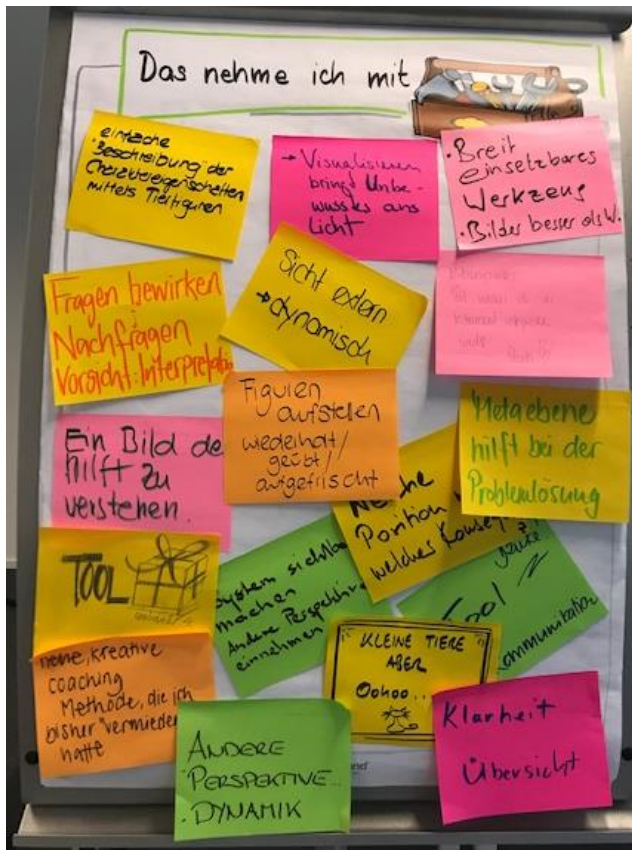 Das nehme ich mit
einfache
Beschreibung der
Charaktereigenschaften
mittels Tierfiguren
→ Visualisieren
bringt Unbe-
wusstes ans
Licht
• Breit
einsetzbares
Werkzeug
• Bilder besser als W.
Fragen bewirken
Nachfragen
Vorsicht: Interpretation
Sicht extern
→ dynamisch
kommt
Figuren
aufstellen
wiederholt/
geübt/
aufgefrischt
Ein Bild de
hilft zu
verstehen.
Metaebene
hilft bei der
Problemlösung
Welche
Position
welches Konsequ
TOOL
System sichtba
machen
Andere Perspektive
einnehmen
Tool
Kommunikation
neue, kreative
coaching
Methode, die ich
bisher "vermieden"
hatte
KLEINE TIERE
ABER
Oohoo...
ANDERE
PERSPEKTIVE...
• DYNAMIK
Klarheit
Übersicht